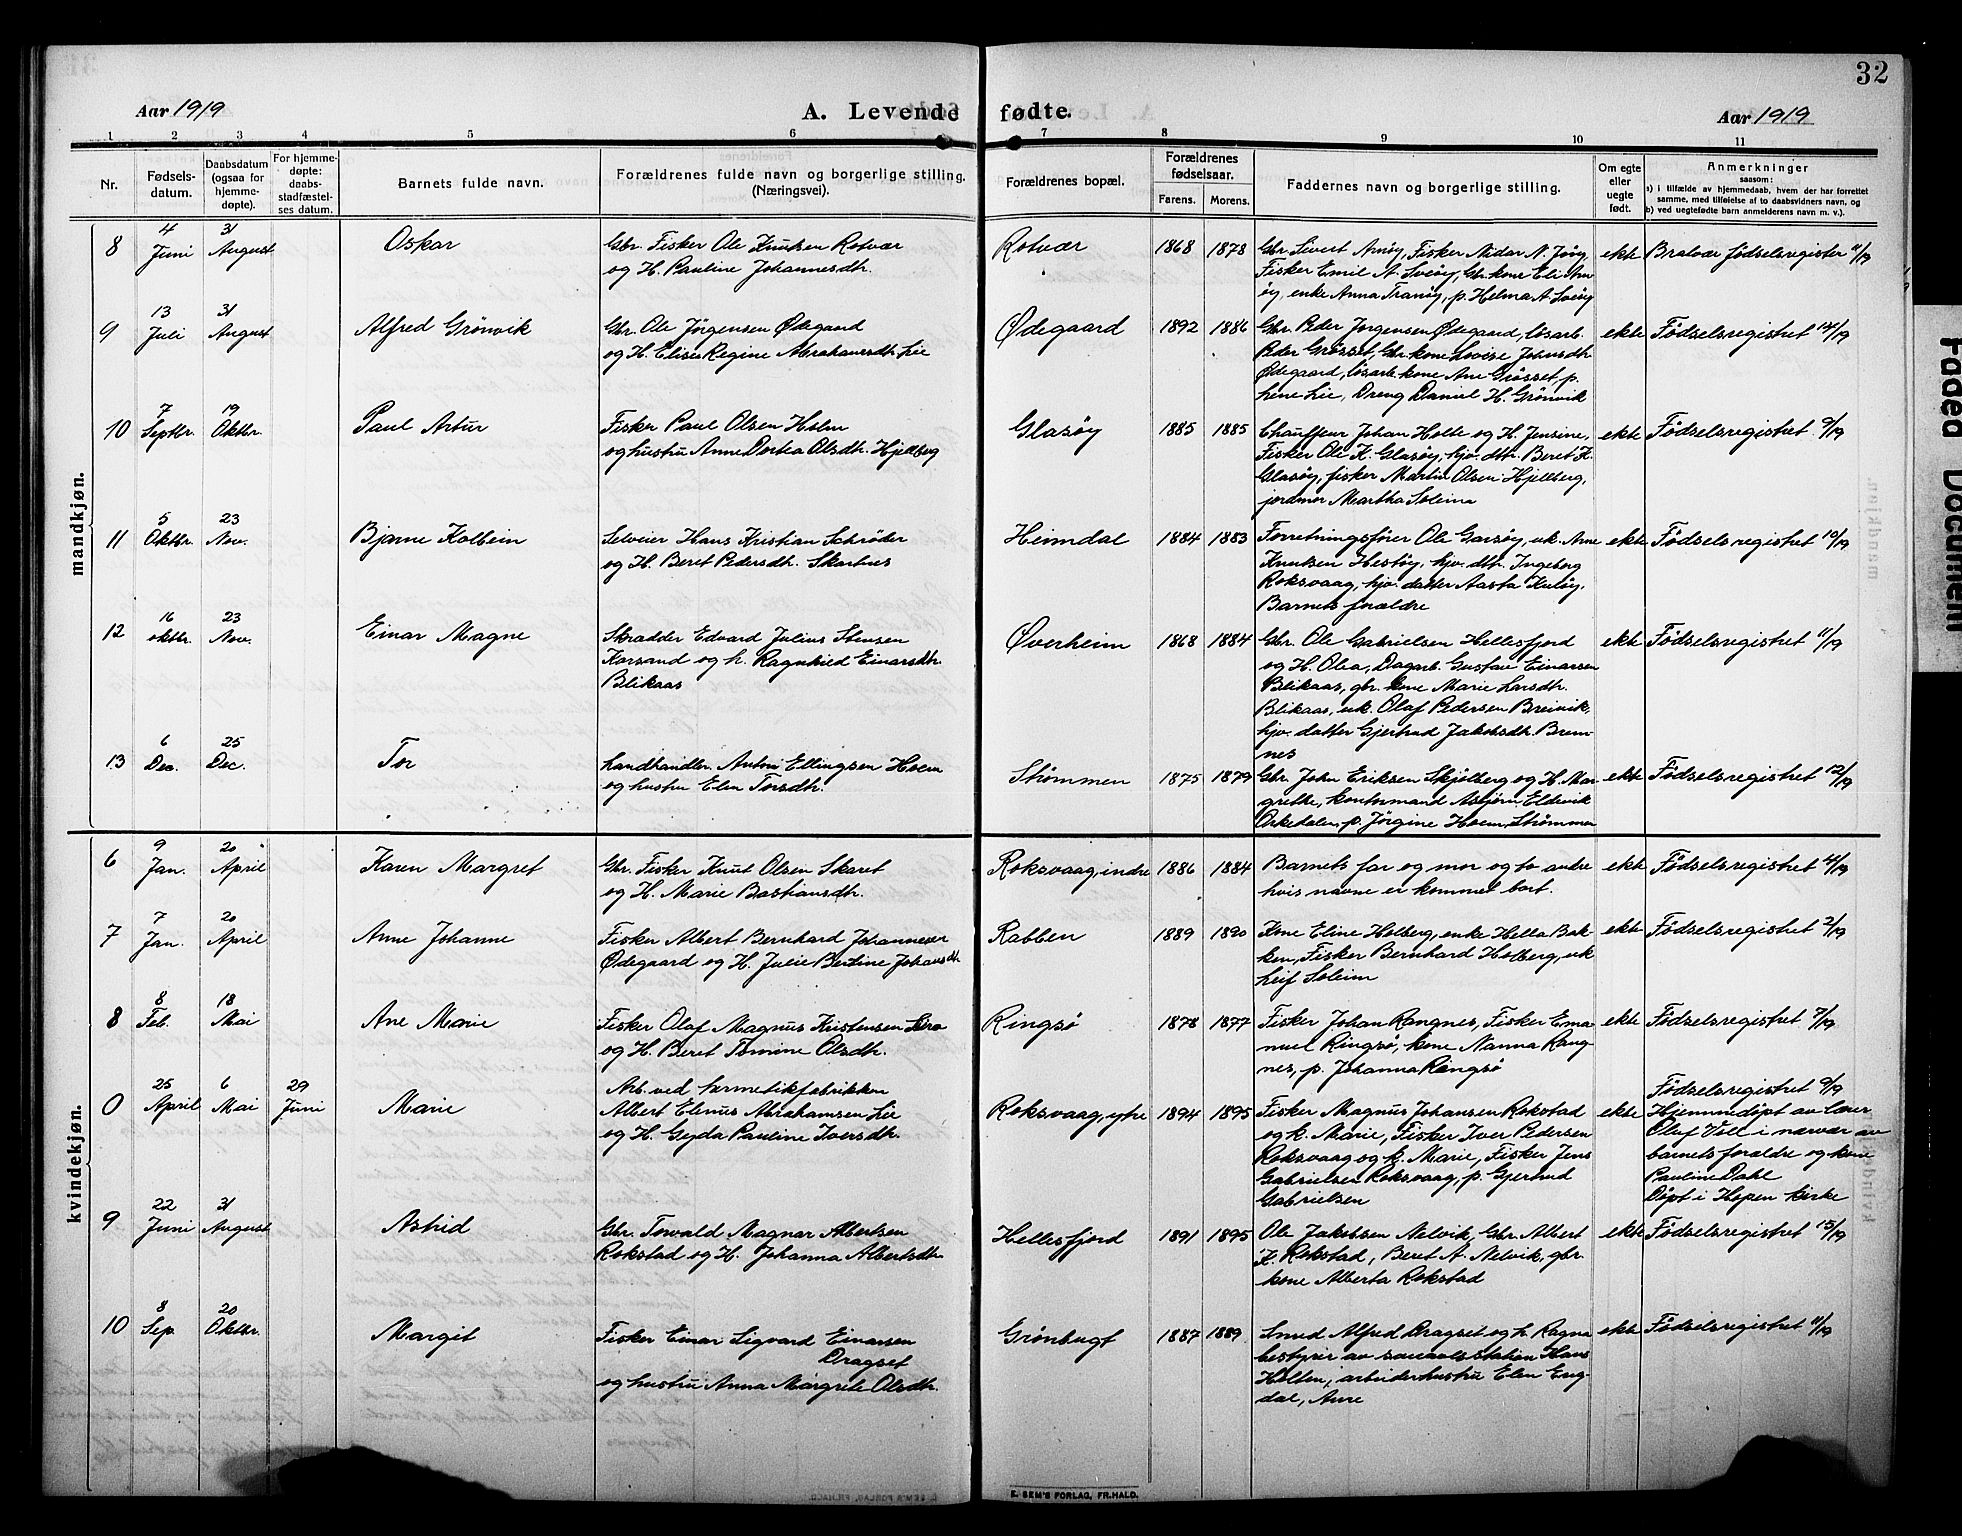 32
Aar 1919
A. Levende fødte.
Aar 1919
1 2 3 4 5 6 7 8 9 10 11
Nr.
Fødsels-
datum.
Daabsdatum
(ogsaa for
hjemme-
døpte).
For hjemme-
døpte:
daabs-
stadfæstel-
ses datum.
Barnets fulde navn.
Forældrenes fulde navn og borgerlige stilling.
(Næringsvei).
Forældrenes bopæl.
Forældrenes
fødselsaar.
Farens. Morens.
Faddernes navn og borgerlige stilling.
Om egte
eller
uegte
født.
Anmerkninger
saasom:
a) i tilfælde av hjemmedaab, hvem der har forrettet
samme, med tilføielse af to daabsvidners navn, og
b) ved uegtefødte barn anmelderens navn m. v.).
mandkjøn.
8
4 Juni
31 August
Oskar
Gbr. Fisker Ole Knutsen Rotvær
og H. Pauline Johannesdh.
Rotvær
1868 1878
Gbr Sivert Arnøy, Fisker Nidar N. Jøøy,
Fisker Emil A Sveøy, Gbr. kone Eli Arn
øy, enke Anna Tranöy, p. Helma A Sveøy
ekte
Bratvær Födselsregister 11/19
9
13 Juli
31 August
Alfred Grönvik
Gbr. Ole Jörgensen Ødegaard
og H. Elise Regine Abrahamsdh. Lie
Ødegaard
1892 1886
Gbr. Peder Jorgensen Ødegaard, lösarb.
Peder Grösset, Gbr. kone Lovise Johansdh
Ødegaard, lösarb. kone Ane Grösset, p.
Lene Lie, Dreng Daniel H. Grönvik
ekte
Födselsregistret 14/19
10
7 Septbr.
19 Oktbr.
Paul Artur
Fisker Paul Olsen Holm
og hustru Anne Dortea Olsdh. Hjellberg
Glasöy
1885 1885
Chauffeur Johan Holte og H. Jensine,
Fisker Ole K. Glasöy, hjv. dtr. Beret K.
Glasöy, fisker Martin Olsen Hjellberg,
jordmor Martha Soleim
ekte
Födselsregistret 9/19
11
5 Oktbr.
23 Nov.
Bjarne Kolbein
Selveier Hans Kristian Schrøder
og H. Beret Pedersdh. Skartnes
Heimdal
1884 1883
Forretningsförer Ole Garsöy, uk. Arne
Knutsen Hestöy, hjv. dtr. Ingeborg
Roksvaag, hjv. datter Aasta Kulöy,
Barnets forældre
ekte
Födselsregistret 10/19
12
16 oktbr.
23 Nov.
Einar Magne
Skradder Edvard Julius Stensen
Korsand og h. Ragnhild Einarsdh.
Blikaas
Øverheim
1868 1884
Gbr. Ole Gabrielsen Hellesfjord
og H. Olea, Dagarb. Gustav Einarsen
Blikaas, gbr. kone Marie Larsdh.
Blikaas, uk. Olaf Pedersen Breivik,
hjv. datter Gjertrud Jakobsdh. Brem-
nes
ekte
Födselsregistret 11/19
13
6 Dec.
25 Dec.
Tor
Landhandler Anton Ellingsen Hoem
og hustru Elen Torsdh.
Strömmen
1875 1879
Gbr. John Eriksen Skjölberg og H. Mar
grethe, kontormand Asbjörn Eldevik
Orkedalen, p. Jörgine Hoem, Strömmen
ekte
Födselsregistret 12/19
kvindekjøn.
6
9 Jan.
20 April
Karen Margret
Gbr. Fisker Knut Olsen Skaret
og H. Marie Bastiansdh.
Roksvaag, indre
1886 1884
Barnets far og mor og to andre
hvis navne er kommet bort.
ekte
Födselsregistret 4/19
7
7 Jan.
20 April
Anne Johanne
Fisker Albert Bernhard Johannesen
Ødegaard og H. Julie Bertine Johansdh
Rabben
1889 1890
Kone Eline Holberg, enke Hella Bak-
ken, Fisker Bernhard Holberg, uk
Leif Soleim
ekte
Födselsregistret 2/19
8
8 Feb.
18 Mai
Ane Marie
Fisker Olaf Magnus Kristensen
og H. Beret Tomine Olsdh.
Ringsö
1878 1877
Fisker Johan Rangnes, Fisker Ema
nuel Ringsö, kone Nanna Rang-
nes, p. Johanna Ringsö
ekte
Födselsregistret 7/19
0
25 April
6 Mai
29 Juni
Marie
Arb. ved hermetikfabrikken
Albert Elenus Abrahamsen Lie
og H. Gyda Pauline Iversdh.
Roksvaag, ytre
1894 1895
Fisker Magnus Johansen Rokstad
og k. Marie, Fisker Iver Pedersen
Roksvaag og k. Marie, Fisker Jens
Gabrielsen Roksvaag, p. Gjertrud
Gabrielsen
ekte
Födselsregistret 9/19
Hjemmedöpt av lærer
Oluf Voll i nærvær av
barnets forældre og kone
Pauline Dahl
Döpt i Hopen kirke
9
22 Juni
31 August
Astrid
Gbr. Torvald Magnar Albertsen
Rokstad og H. Johanna Albertsdh
Hellesfjord
1891 1895
Ole Jakobsen Nelvik, Gbr. Albert
K. Rokstad, Beret A. Nelvik, gbr.
kone Alberta Rokstad
ekte
Födselsregistret 15/19
10
8 Sep.
20 Oktbr.
Margit
Fisker Einar Sigvard Einarsen
Dragset
og hustru Anna Margrete Olsdh.
Grönbugt
1887 1889
Smed Alfred Dragset og h. Ragna
bestyrer av station Hans
Holten, arbeiderhustru Elen Eng-
dal, Aure
ekte
Födselsregistret 11/19
E. SEM'S FORLAG, FR.HALD.
Faded Document